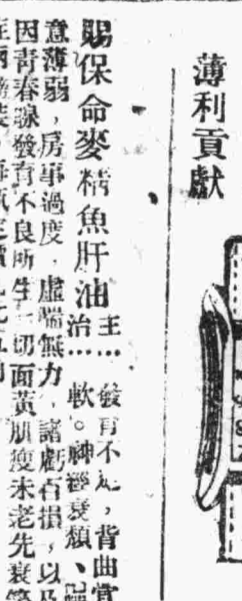 薄利貢獻
賜保命麥精魚肝油
主治……
發育不足，背曲
軟。神經衰頹、
意薄弱，房事過度，虛喘無力，諸虧百損，以及
因青春線發育不良所生一切面黃肌瘦未老先衰等